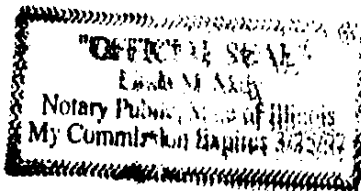 "OFFICIAL SEAL"
Notary Public, State of Illinois
My Commission Expires